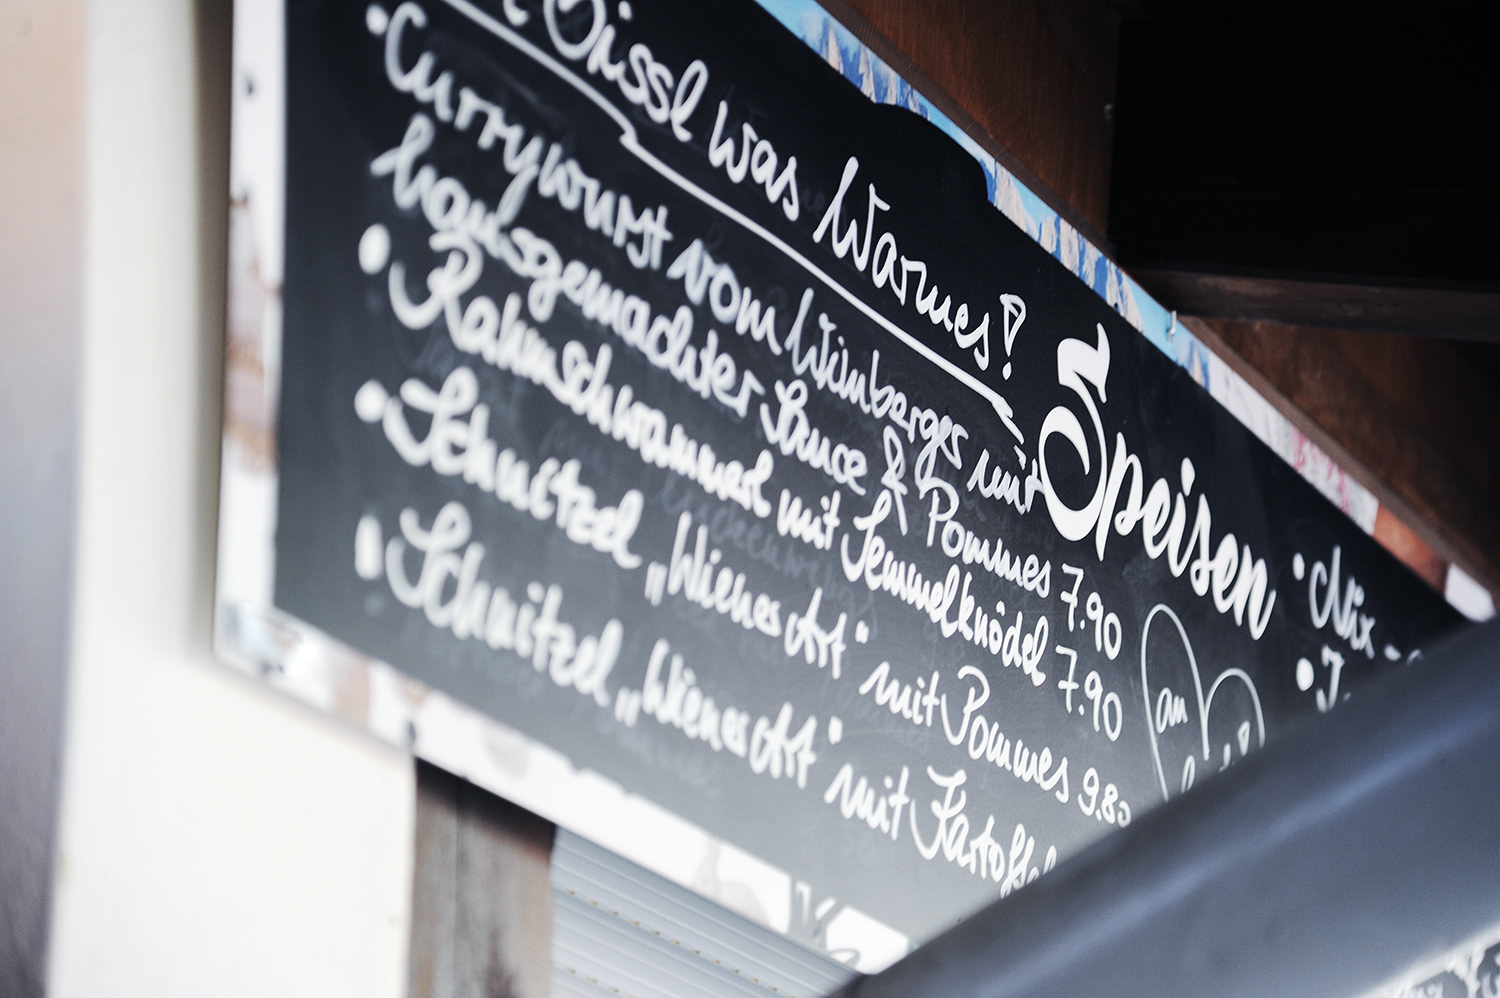 Bissl was Warmes!
• Currywurst vom Wimberger mit
hausgemachter Sauce & Pommes 7.90
• Rahmschwammerl mit Semmelknödel 7.90
• Schnitzel „Wiener Art“ mit Pommes 9.80
• Schnitzel „Wiener Art“ mit Kartoffel
Speisen
an
• Nix